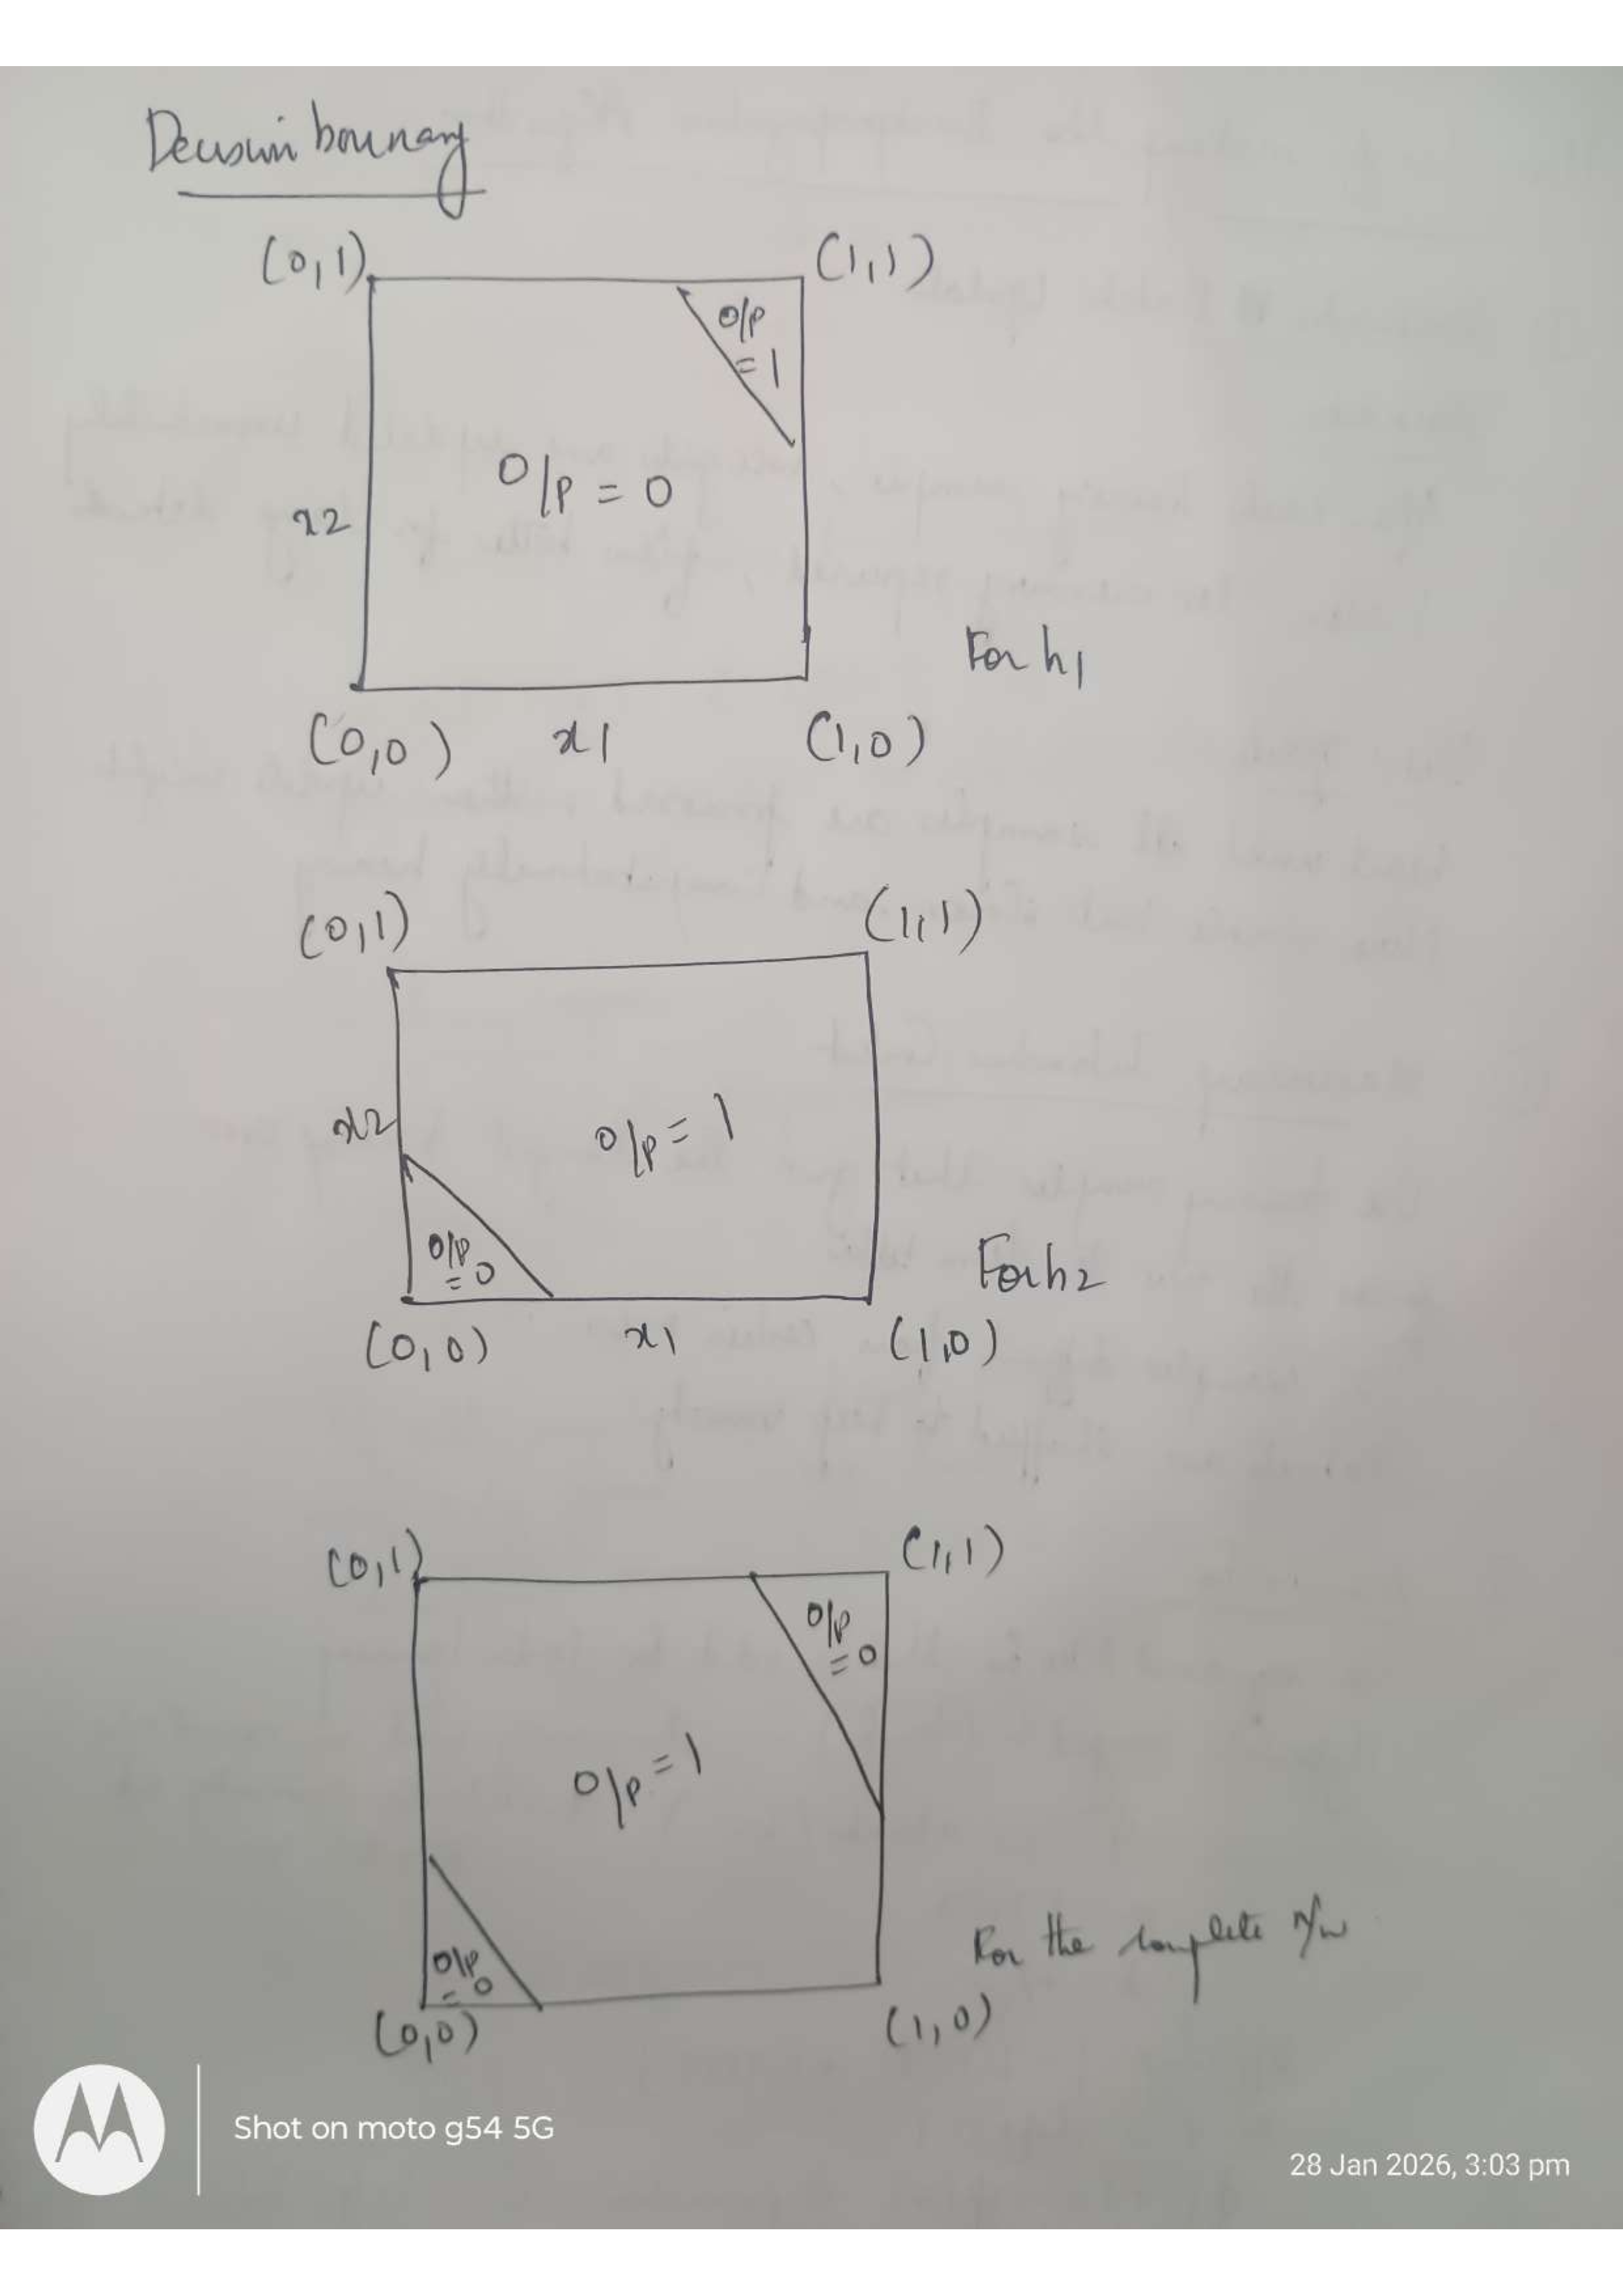 Decision bounary
(0,1) (1,1)
O/P
= 1
O/P = 0
x2
For h1
(0,0) x1 (1,0)
(0,1) (1,1)
x2 O/P = 1
O/P
= 0
For h2
(0,0) x1 (1,0)
(0,1) (1,1)
O/P
= 0
O/P = 1
For the complete n/w
O/P
= 0
(0,0) (1,0)
Shot on moto g54 5G
28 Jan 2026, 3:03 pm